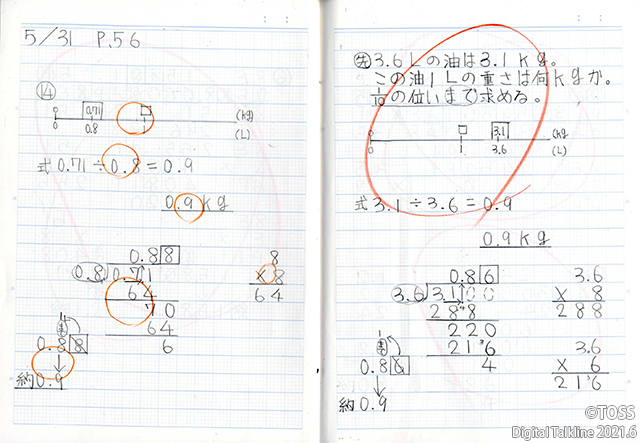 5/31 P.56
⑭
0 0.71 □ (kg)
0 0.8 1 (L)
式 0.71÷0.8=0.9
0.9kg
0.88
0.8)0.71
64
70
64
6
8
×8
64
0.88
↓
約0.9
㊝ 3.6Lの油は3.1kg。
この油1Lの重さは何kgか。
1/10の位いまで求める。
0 □ 3.1 (kg)
0 1 3.6 (L)
式 3.1÷3.6=0.9
0.9kg
0.86
3.6)3.100
288
220
216
4
3.6
× 8
288
3.6
× 6
216
0.86
↓
約0.9
©TOSS
Digital Talkline 2021.6